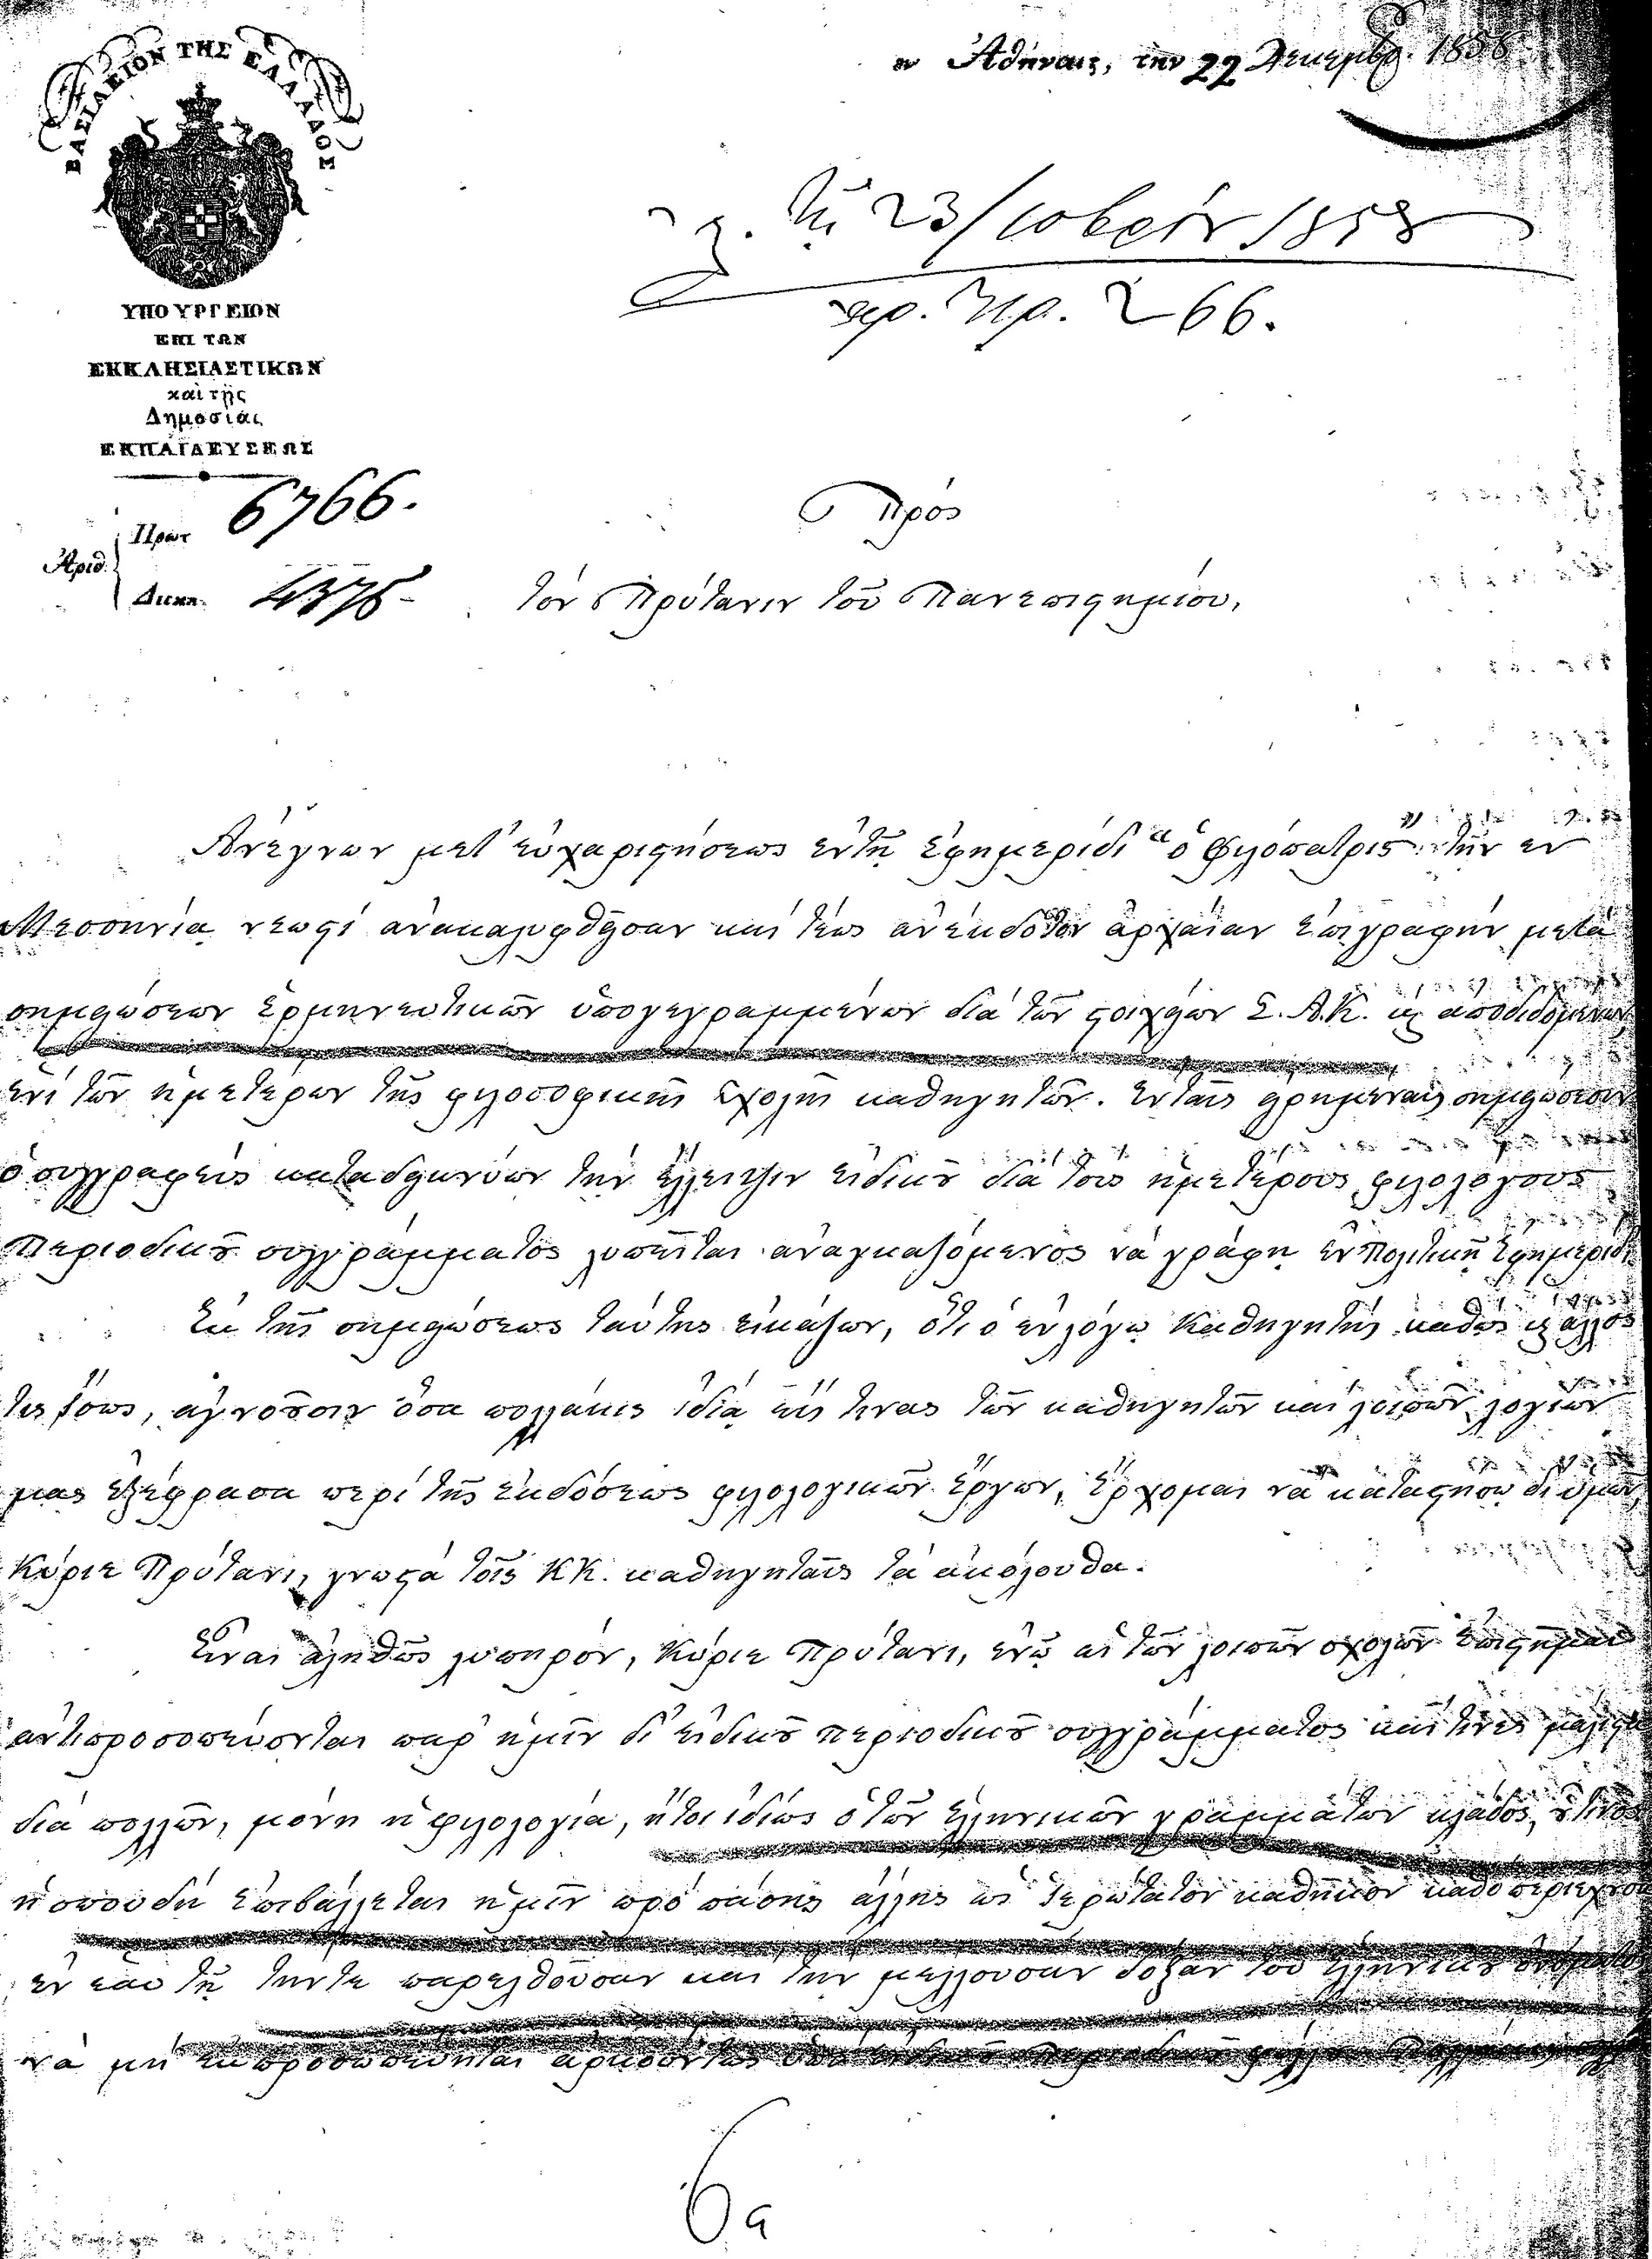 ΒΑΣΙΛΕΙΟΝ ΤΗΣ ΕΛΛΑΔΟΣ
ἐν Ἀθήναις, τὴν 22 Δεκεμβρ. 1858
τῇ 23/10βρίου 1858
πρ. Πρ. 266.
ΥΠΟΥΡΓΕΙΟΝ
ΕΠΙ ΤΩΝ
ΕΚΚΛΗΣΙΑΣΤΙΚΩΝ
καὶ τῆς
Δημοσίας
ΕΚΠΑΙΔΕΥΣΕΩΣ
Ἀριθ.
Πρωτ 6766.
Διεκπ. 4375
Πρὸς
τὸν Πρύτανιν τοῦ Πανεπιστημίου,
Ἀνέγνων μετ' εὐχαριστήσεως ἐν τῇ Ἐφημερίδι "ὁ Φιλόπατρις" τὴν ἐν
Μεσσηνίᾳ νεωστὶ ἀνακαλυφθεῖσαν καὶ τέως ἀνέκδοτον ἀρχαίαν ἐπιγραφὴν μετὰ
σημειώσεων ἑρμηνευτικῶν ὑπογεγραμμένων διὰ τῶν στοιχείων Σ. Α. Κ. καὶ ἀποδιδομένων
ἑνὶ τῶν ἡμετέρων τῆς φιλοσοφικῆς Σχολῆς καθηγητῶν. Ἐν ταῖς εἰρημέναις σημειώσεσιν
ὁ συγγραφεὺς καταδεικνύων τὴν ἔλλειψιν εἰδικοῦ διὰ τοὺς ἡμετέρους φιλολόγους
Περιοδικοῦ συγγράμματος λυπεῖται ἀναγκαζόμενος νὰ γράφῃ ἐν Πολιτικῇ Ἐφημερίδι.
Ἐκ τῆς σημειώσεως ταύτης εἰκάζων, ὅτι ὁ ἐν λόγῳ Καθηγητὴς καθὼς καὶ ἄλλος
τις ἴσως, ἀγνοοῦσιν ὅσα πολλάκις ἰδίᾳ εἴς τινας τῶν καθηγητῶν καὶ λοιπῶν λογίων
μας ἐξέφρασα περὶ τῆς ἐκδόσεως φιλολογικῶν ἔργων, ἔρχομαι νὰ καταστήσω δι' ὑμῶν,
Κύριε Πρύτανι, γνωστὰ τοῖς ΚΚ. καθηγηταῖς τὰ ἀκόλουθα.
Εἶναι ἀληθῶς λυπηρόν, Κύριε Πρύτανι, ἐνῷ αἱ τῶν λοιπῶν σχολῶν ἐπιστῆμαι
ἀντιπροσοπεύονται παρ' ἡμῖν δι' εἰδικοῦ περιοδικοῦ συγγράμματος καὶ τινὲς μάλιστα
διὰ πολλῶν, μόνη ἡ φιλολογία, ἤτοι ἰδίως ὁ τῶν ἑλληνικῶν γραμμάτων κλάδος, οὗτινος
ἡ σπουδὴ ἐπιβάλλεται ἡμῖν πρὸ πάσης ἄλλης ὡς ἱερώτατον καθῆκον καθὸ περιέχουσα
ἐν ἑαυτῇ τήν τε παρελθοῦσαν καὶ τὴν μέλλουσαν δόξαν τοῦ ἑλληνικοῦ ὀνόματος,
νὰ μὴ ἐκπροσωπεύηται ἀρκούντως ὑπὸ εἰδικοῦ περιοδικοῦ
6α